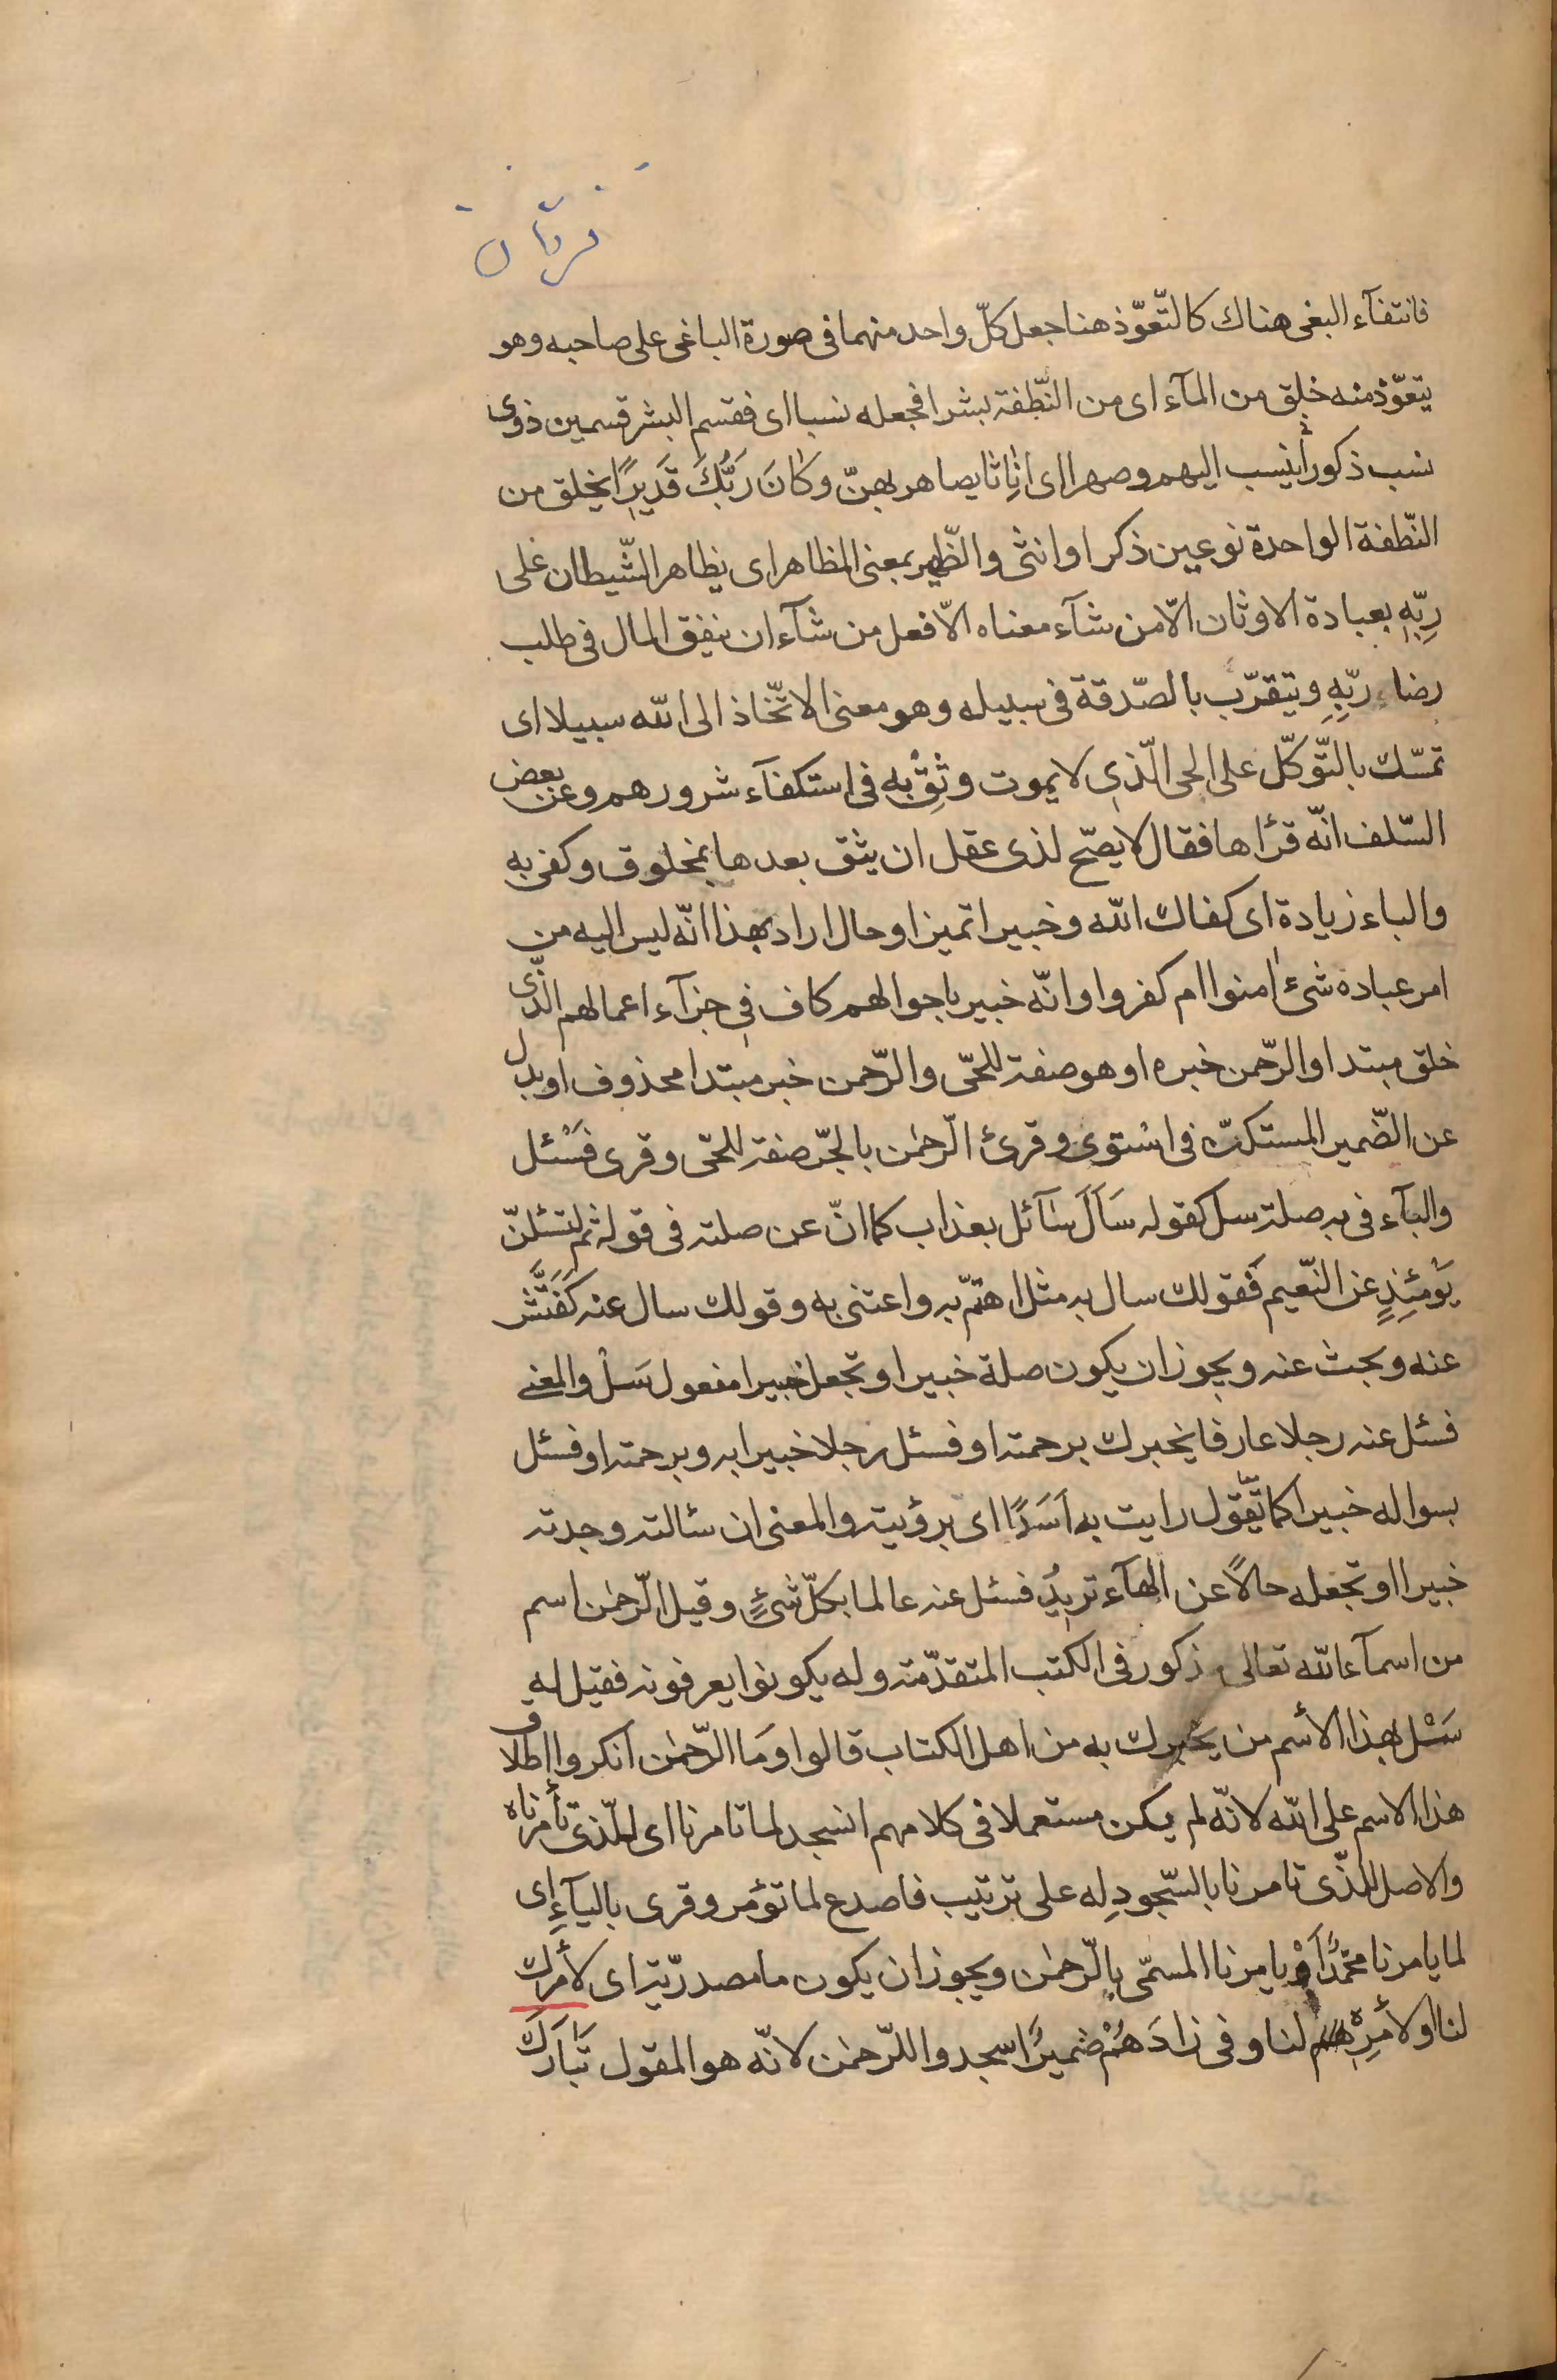 فرقان
فانتفآء البغى هناك كالتّعوّذ هنا جعل كلّ واحد منهما فى صورة الباغى على صاحبه وهو
يتعوّذ منه خلق من المآء اى من النّطفة بشرا فجعله نسبا اى فقسم البشر قسمين ذوى
نسب ذكوراً ينسب اليهم وصهرا اى اناثا يصاهر بهنّ وكَانَ رَبُّكَ قَديرًا يخلق من
النّطفة الواحدة نوعين ذكرا وانثى والظّهير بمعنى المظاهر اى يظاهر الشّيطان على
رِبّهِ بعبادة الاوثان الاّ من شآء معناه الاّ فعل من شآء ان ينفق المال فى طلب
رضاء ربّهِ ويتقرّب بالصّدقة فى سبيله وهو معنى الاتّخاذ الى الله سبيلا اى
تمسّك بالتّوكّل على الحى الّذى لا يموت وثِقْ به فى استكفآء شرورهم وعن بعض
السّلف انّه قرأها فقال لا يصّح لذى عقل ان يثق بعدها بمخلوق وكفى به
والباء زيادة اى كفاك الله وخبيرا تميز او حال اراد بهذا انّه ليس اليه من
امر عباده شىٔ امنوا ام كفروا وانّه خبير باحوالهم كاف فى جزآء اعمالهم الّذى
خلق مبتدا والرّحمن خبره او هو صفة للحّى والرّحمن خبر مبتدا محذوف او بدل
عن الضّمير المستكنّ فى استوى وقرئ الرّحمٰن بالجّر صفة للحّى وقرى فسْئل
والبآء فى به صلة سل كقوله سَاَلَ سَآئل بعذاب كما انّ عن صلته فى قوله ثم لتسئلنّ
يَوْمَئِذٍ عن النّعيم فقولك سال به مثل اهتمّ به واعتنى به وقولك سال عنه كَفَتَّش
عنه وبحث عنه ويجوز ان يكون صلة خبيرا وتجعل خبيرا مفعول سَلْ والمعنى
فسئل عنه رجلا عارفا يخبرك برحمته او فسئل رجلا خبيرا به وبرحمته او فسئل
بسواله خبيرا كما تقول رايت به اَسَدًا اى برؤيته والمعنى ان سئالته وجدته
خبيرا او تجعله حالاً عن الهآء تريدُ فسئل عنه عالما بكلّ شىٍٔ وقيل الرّحمٰن اسم
من اسمآء الله تعالى مذكور فى الكتب المتقدّمة وله يكونوا يعرفونه فقيل له
سَئْل بهذا الأسم من يخبرك به من اهل الكتاب قالوا وَمَا الرّحمٰن انكروا اطلاق
هذا الاسم على الله لانّه لم يكن مستعملا فى كلامهم انسجد لما تامرنا اى للّذى تأمرناه
والاصل للّذى تامرنا بالسّجودِ له على ترتيب فاصدع لما تؤمر وقرى باليآءِ اى
لما يامرنا محمّدٌ اَوْ يامرنا المسمّى بالرّحمٰن ويجوز ان يكون ما مصدريّة اى لأمرك
لنا او لأمرِه لنا وفى زادَهُمْ ضميرُ اسجدوا للرّحمٰن لانّه هو المقول تَبارَكَ